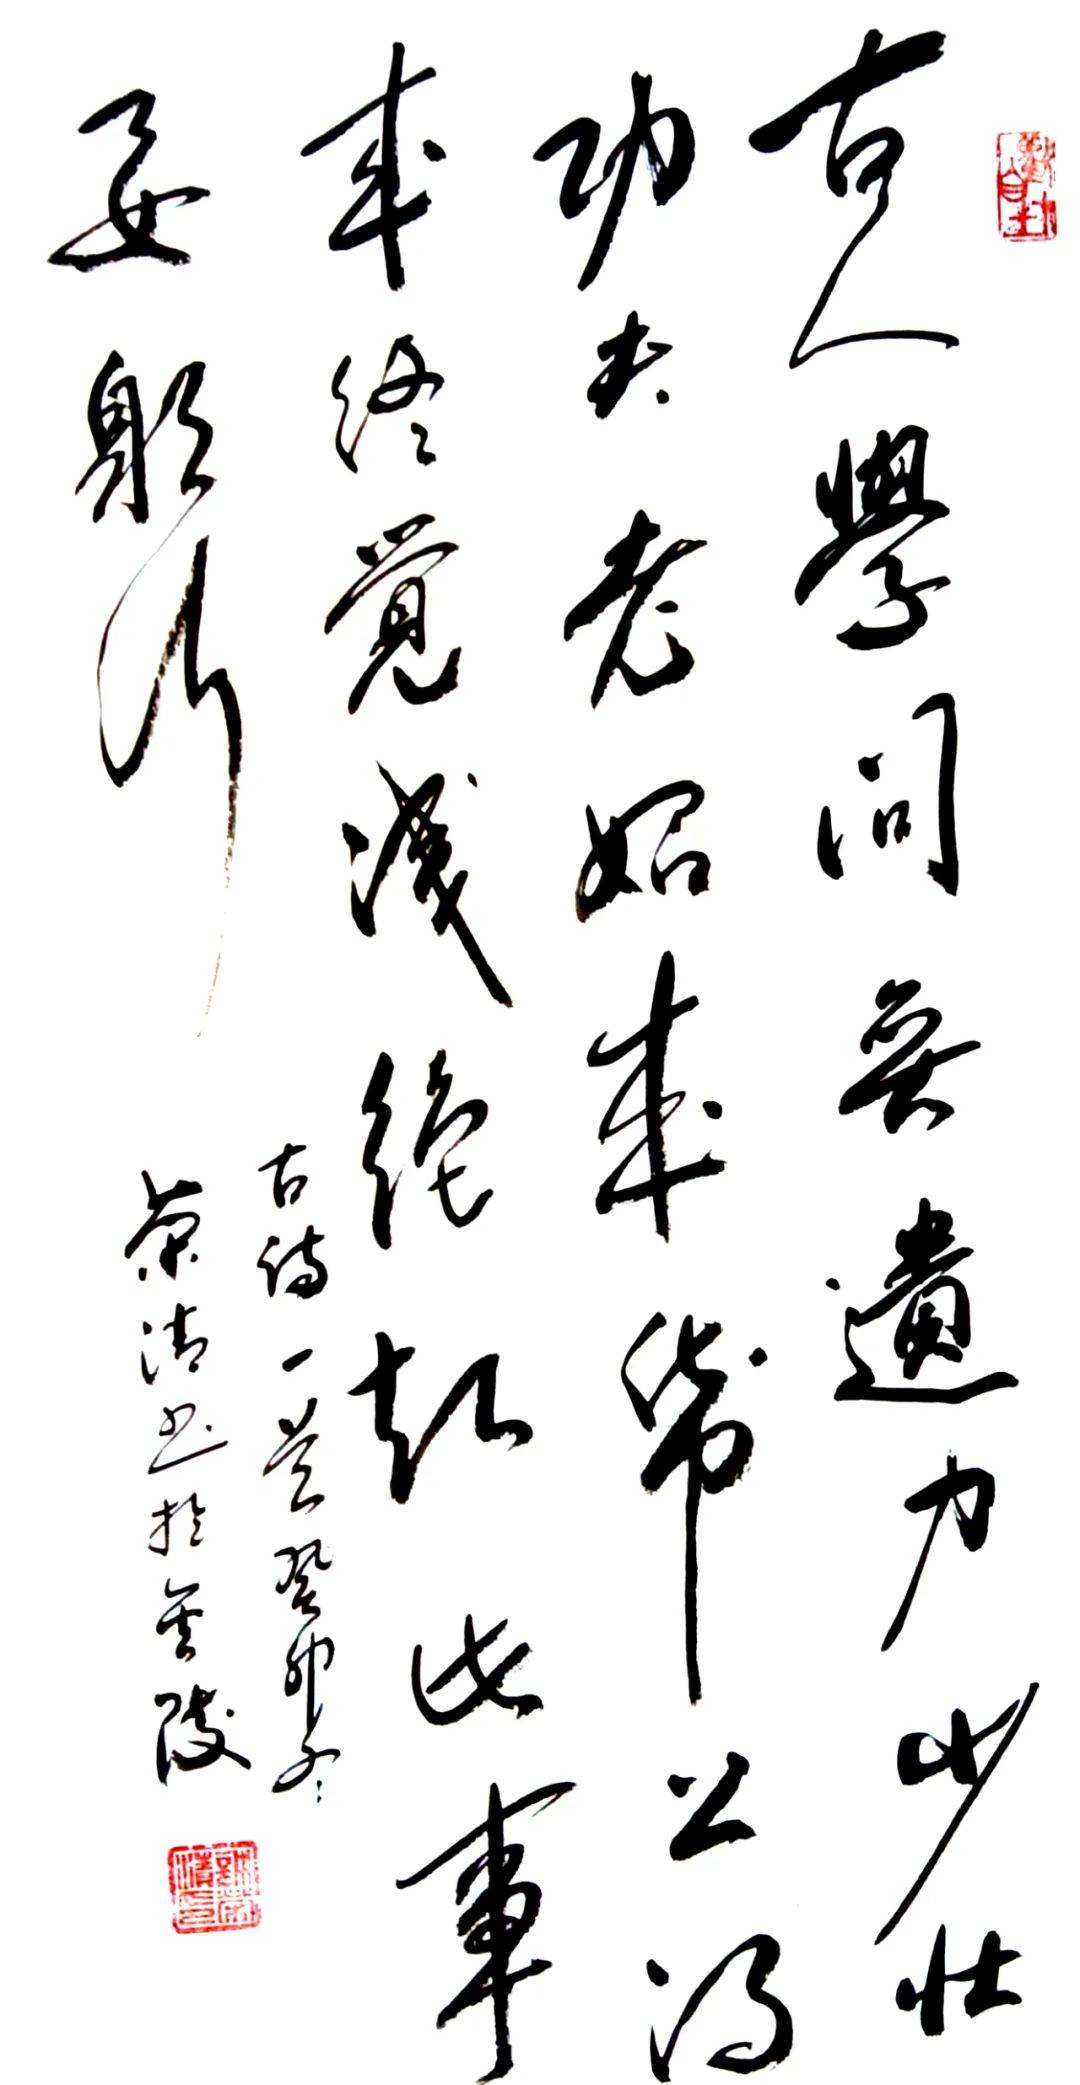 古人學问無遺力少壮
功夫老始成帋上得
来终觉淺绝知此事
要躬行
古诗一首癸卯冬
荣清书於金陵